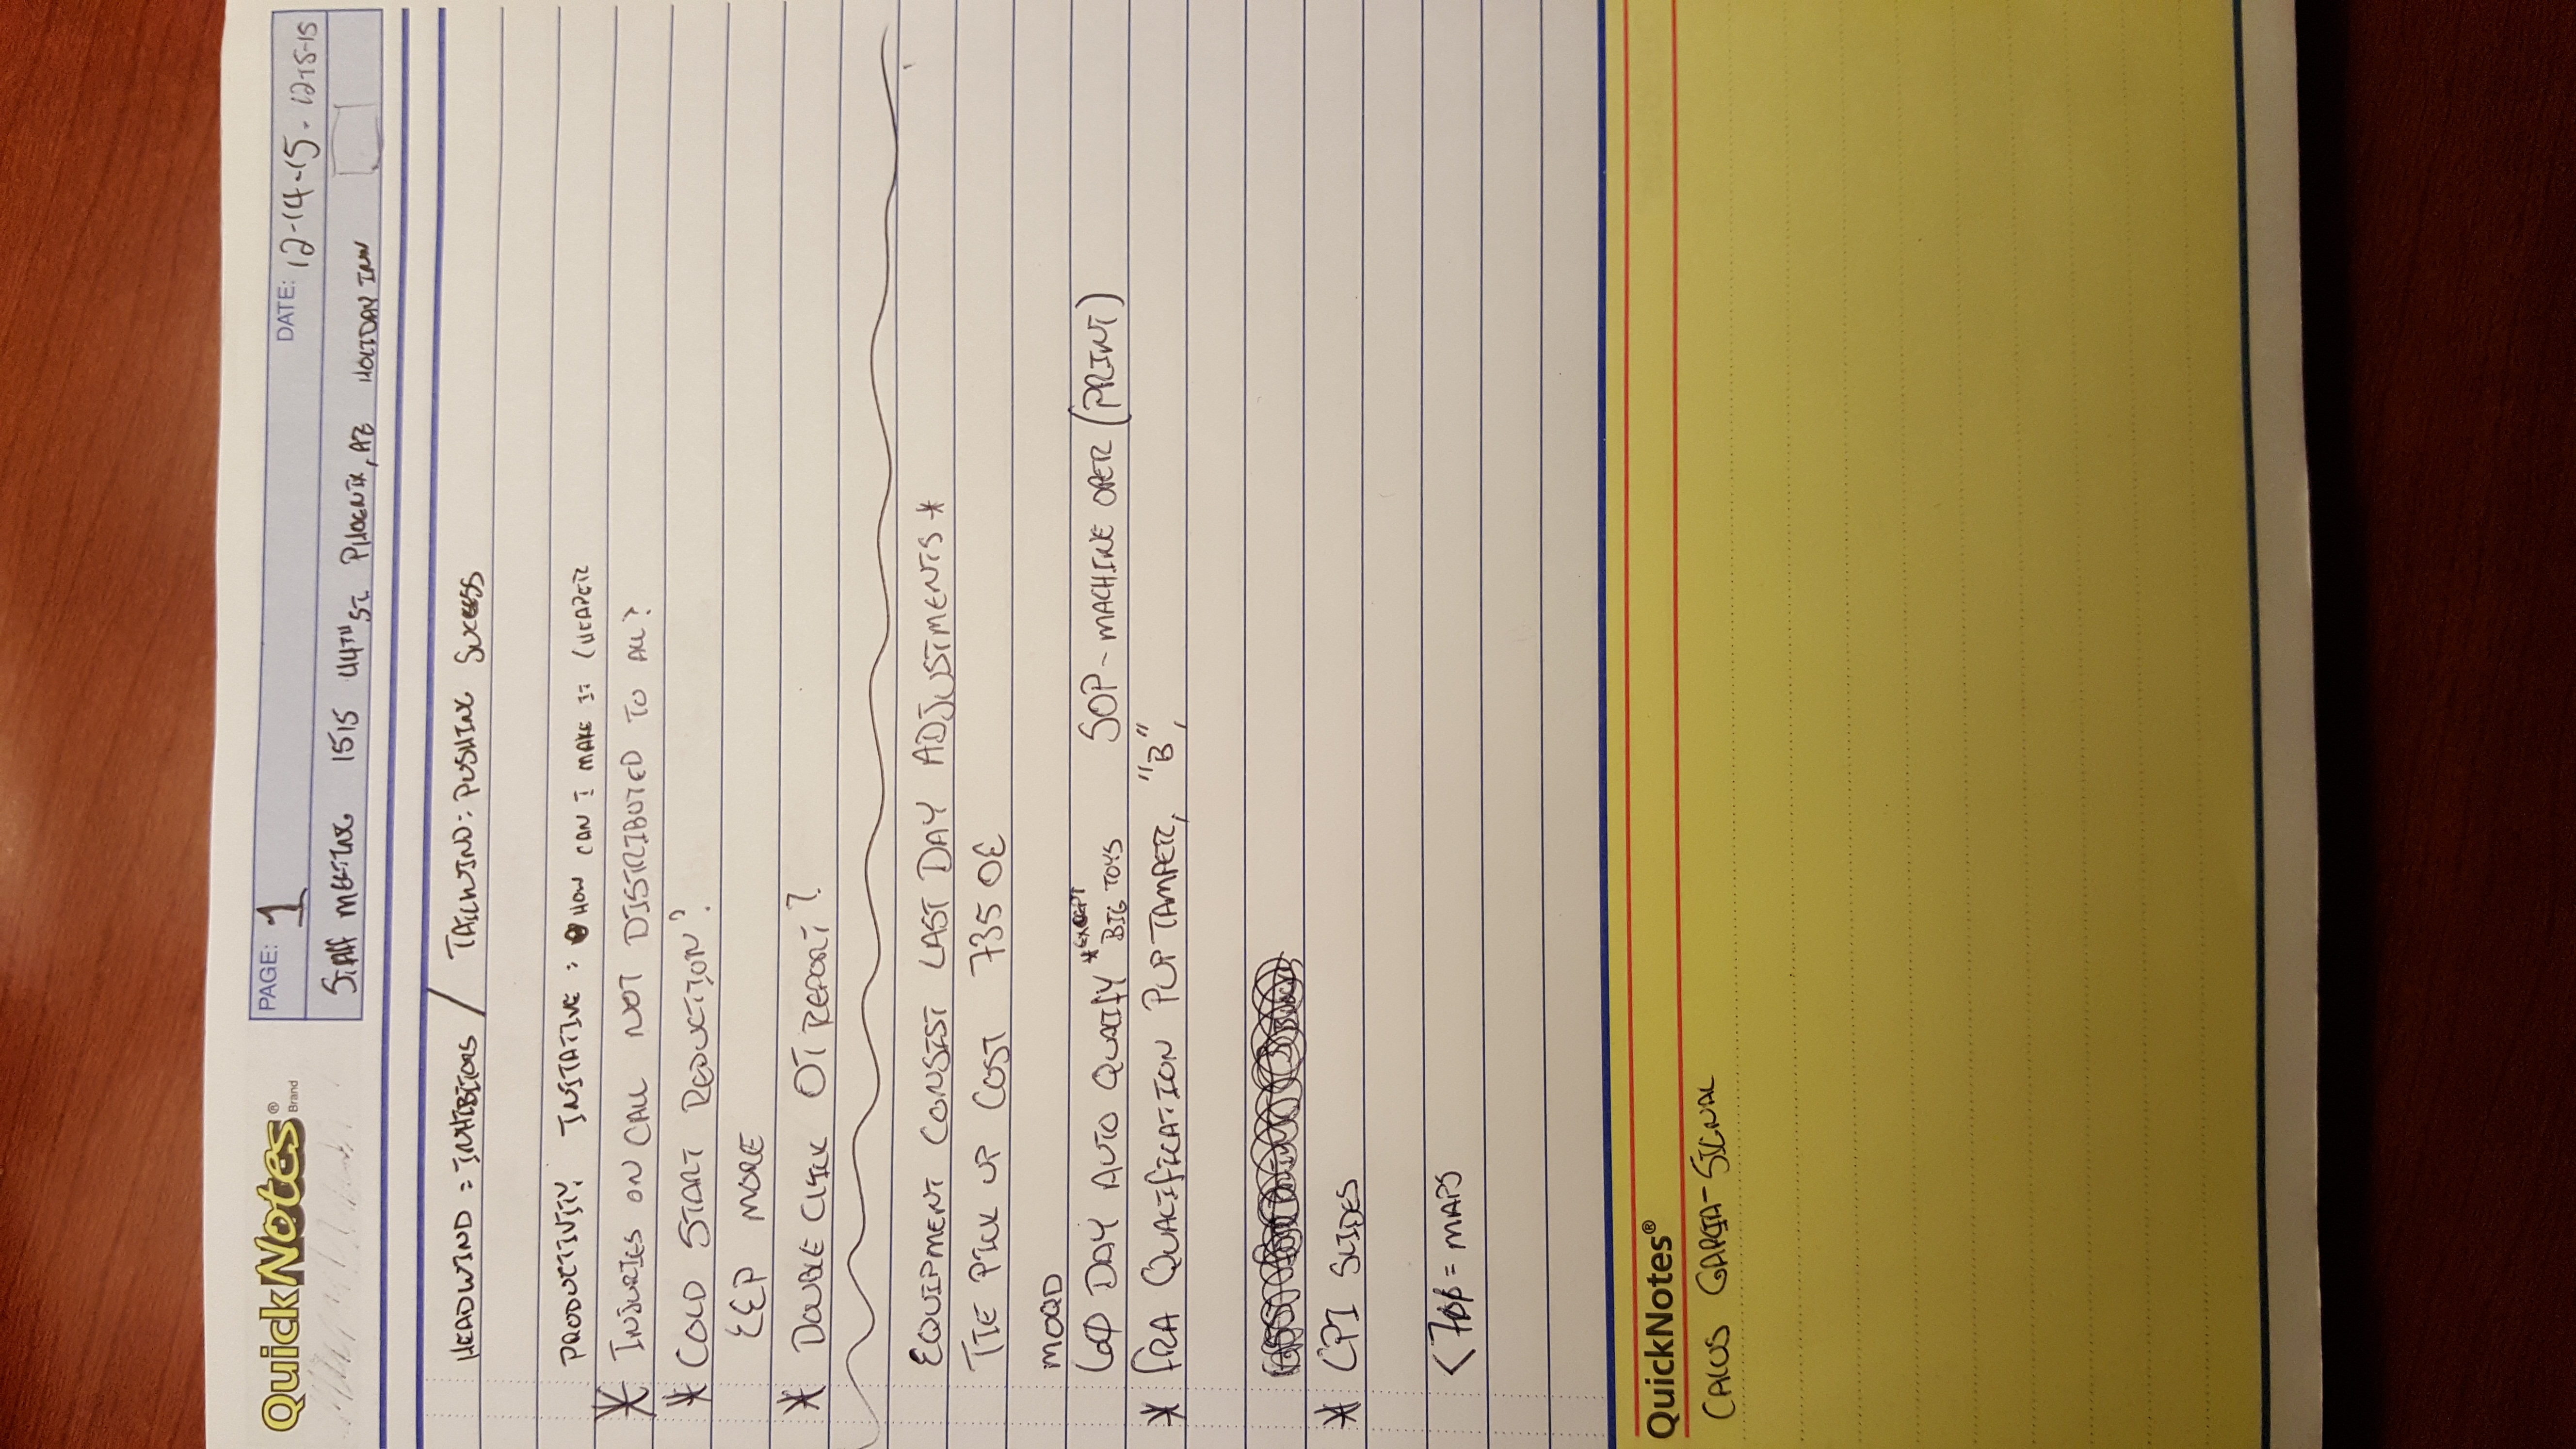 QuickNotes® Brand
PAGE: 1 DATE: 12-14-15 - 12-15-15
STAFF MEETING 1515 44TH ST PHOENIX, AZ HOLIDAY INN
HEADWIND = INHIBITORS / TAILWIND: PUSHING SUCCESS
PRODUCTIVITY INITATIVE: HOW CAN I MAKE IT CHEAPER
* INJURIES ON CALL NOT DISTRIBUTED TO ALL?
* COLD START REDUCTION?
EEP MORE
* DOUBLE CLICK OT REPORT?
EQUIPMENT CONSIST LAST DAY ADJUSTMENTS *
TIE PICK UP COST 735 OE
MOQD
60 DAY AUTO QUALIFY *EXCEPT BIG TOYS SOP - MACHINE OPER (PRINT)
* FRA QUALIFICATION PUP TAMPER, "B",
* CPI SLIDES
< 7φφ = MAPS
QuickNotes®
CALUS GARCIA - SIGNAL